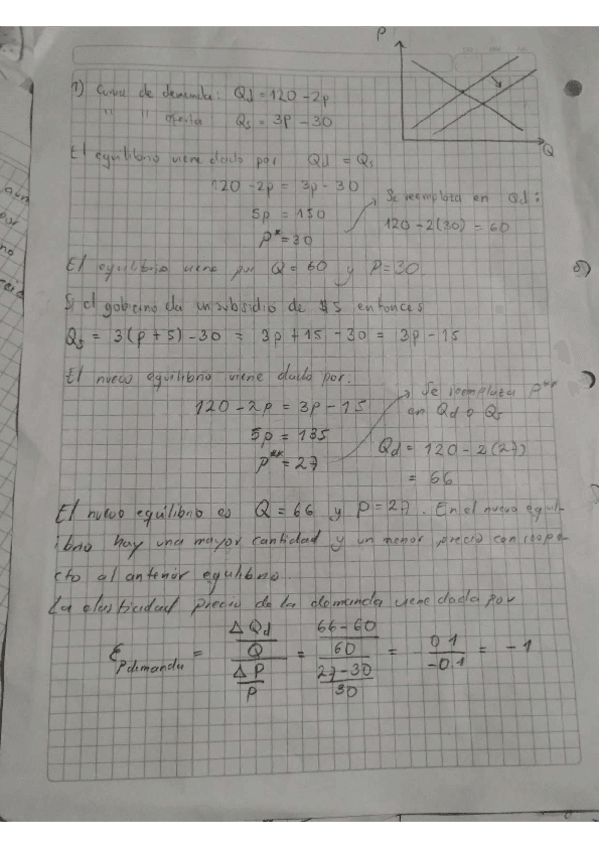 P
Q
1) Curva de demanda: Qd = 120 - 2p
" " oferta: Qs = 3p - 30
El equilibrio viene dado por Qd = Qs
120 - 2p = 3p - 30
5p = 150
p* = 30
Se reemplaza en Qd:
120 - 2(30) = 60
El equilibrio viene por Q = 60 y P = 30
Si el gobierno da un subsidio de $5 entonces
Qs = 3(p + 5) - 30 = 3p + 15 - 30 = 3p - 15
El nuevo equilibrio viene dado por:
120 - 2p = 3p - 15
5p = 135
p** = 27
Se reemplaza p**
en Qd o Qs
Qd = 120 - 2(27)
= 66
El nuevo equilibrio es Q = 66 y P = 27. En el nuevo equil-
ibrio hay una mayor cantidad y un menor precio con respe-
cto al anterior equilibrio.
La elasticidad precio de la demanda viene dada por
Ep demanda = (ΔQd / Q) / (ΔP / P) = ((66 - 60) / 60) / ((27 - 30) / 30) = 0.1 / -0.1 = -1